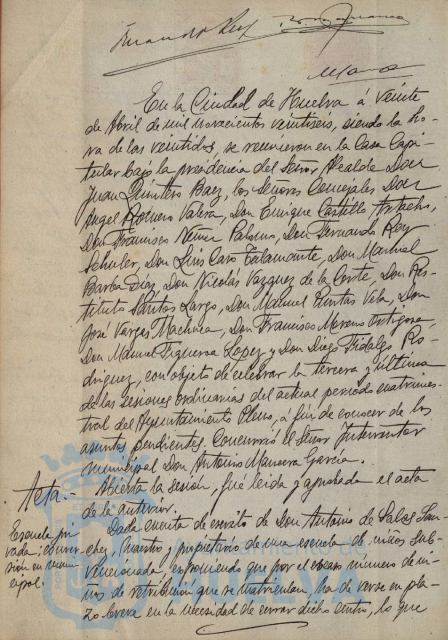 En la Ciudad de Huelva á veinte
de Abril de mil novecientos veintiseis, siendo la ho-
ra de las veintidos, se reunieron en la Casa Capi-
tular bajo la presidencia del Señor Alcalde Don
Juan Quintero Baez, los Señores Concejales Don
Angel Romero Valera, Don Enrique Castillo
Don Francisco Nuñez Palomo, Don Fernando Rey
Schuler, Don Luis Caro Talamante, Don Manuel
Barba Diaz, Don Nicolás Vazquez de la Corte, Don Res-
tituto Santos Largo, Don Manuel Vila, Don
José Vargas Machuca, Don Francisco Moreno Ortigosa,
Don Manuel Figueroa Lopez y Don Diego Fidalgo Ro-
driguez, con objeto de celebrar la tercera y última
de las sesiones ordinarias del actual periodo cuatrimes-
tral del Ayuntamiento Pleno, á fin de conocer de los
asuntos pendientes. Concurrió el Señor Interventor
municipal Don Antonio Garcia.
Acta.- Abierta la sesión, fué leida y aprobada el acta
de la anterior.
Escuela pri-
vada: conver-
sión en muni-
cipal.
Dada cuenta de escrito de Don Antonio de Palos San-
chez, Maestro y propietario de una escuela de niños sub-
vencionada, exponiendo que por el escaso número de ni-
ños de retribución que se matriculan, ha de verse en pla-
zo breve en la necesidad de cerrar dicho centro, lo que